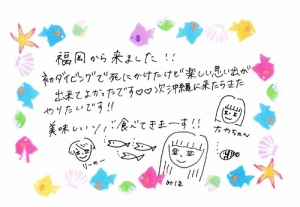 福岡から来ました!!
初ダイビングで死にかけたけど楽しい思い出が
出来てよかったです♡♡次沖縄に来たらまた
やりたいです!!
美味しいソバ食べてきまーす!!
たかちゃん
りーのー
みほ